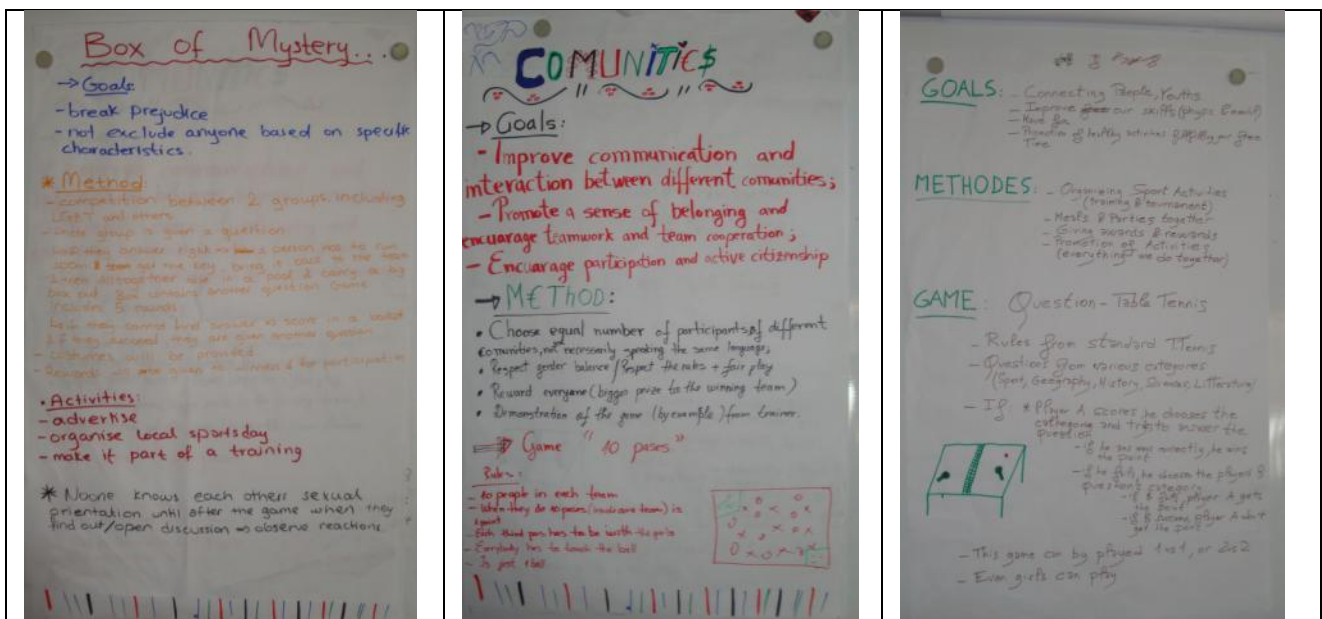 Box of Mystery...
→ Goals
- break prejudice
- not exclude anyone based on specific
characteristics.
* Method:
- competition between 2 groups including
LGBT and others
- each group is given a question
person has to run
get the key, bring it back to the team
a pool & carry a big
box out. Box contains another question (game
5 rounds)
score in a basket
& if they succeed they are given another question
- costumes will be provided
- Rewards given to winners & for participation
• Activities:
- advertise
- organise local sportsday
- make it part of a training
* Noone knows each others sexual
orientation until after the game when they
find out/open discussion ⇒ observe reactions
COMUNITIE$
→ Goals:
- Improve communication and
interaction between different comunities;
- Promote a sense of belonging and
encuarage teamwork and team cooperation;
- Encuarage participation and active citizenship
→ METhOD:
• Choose equal number of participants of different
comunities, not necessarily speaking the same language;
• Respect gender balance/Respect the rules + fair play
• Reward everyone (bigger prize to the winning team)
• Demonstration of the game (by example) from trainer.
Game "10 pases"
Rules:
- 10 people in each team
- When they do 10 passes is
1 point
- Each third pas has to be with the
- Everybody has to touch the ball
- Is just 1 ball
GOALS: - Connecting People, Youths
- Improve our skills (physic & mind)
- Have fun
- Promotion of healthy activities our free
Time
METHODES: - Organizing Sport Activities
(training & tournament)
- Meals & Parties together
- Giving awards & rewards
- Promotion of Activities
(everything we do together)
GAME: Question - Table Tennis
- Rules from standard TTennis
- Questions from various categories
(Sport, Geography, History, Science, Litterature)
- If: * Player A scores, he chooses the
cathegory and trys to answer the
question
- if he answers correctly, he wins
the point
- if he fails, he chooses the player B
question's category
- if B fails, player A gets
the point
- if B success, player A don't
get the point
- This game can by played 1vs1, or 2vs2
- Even girls can play